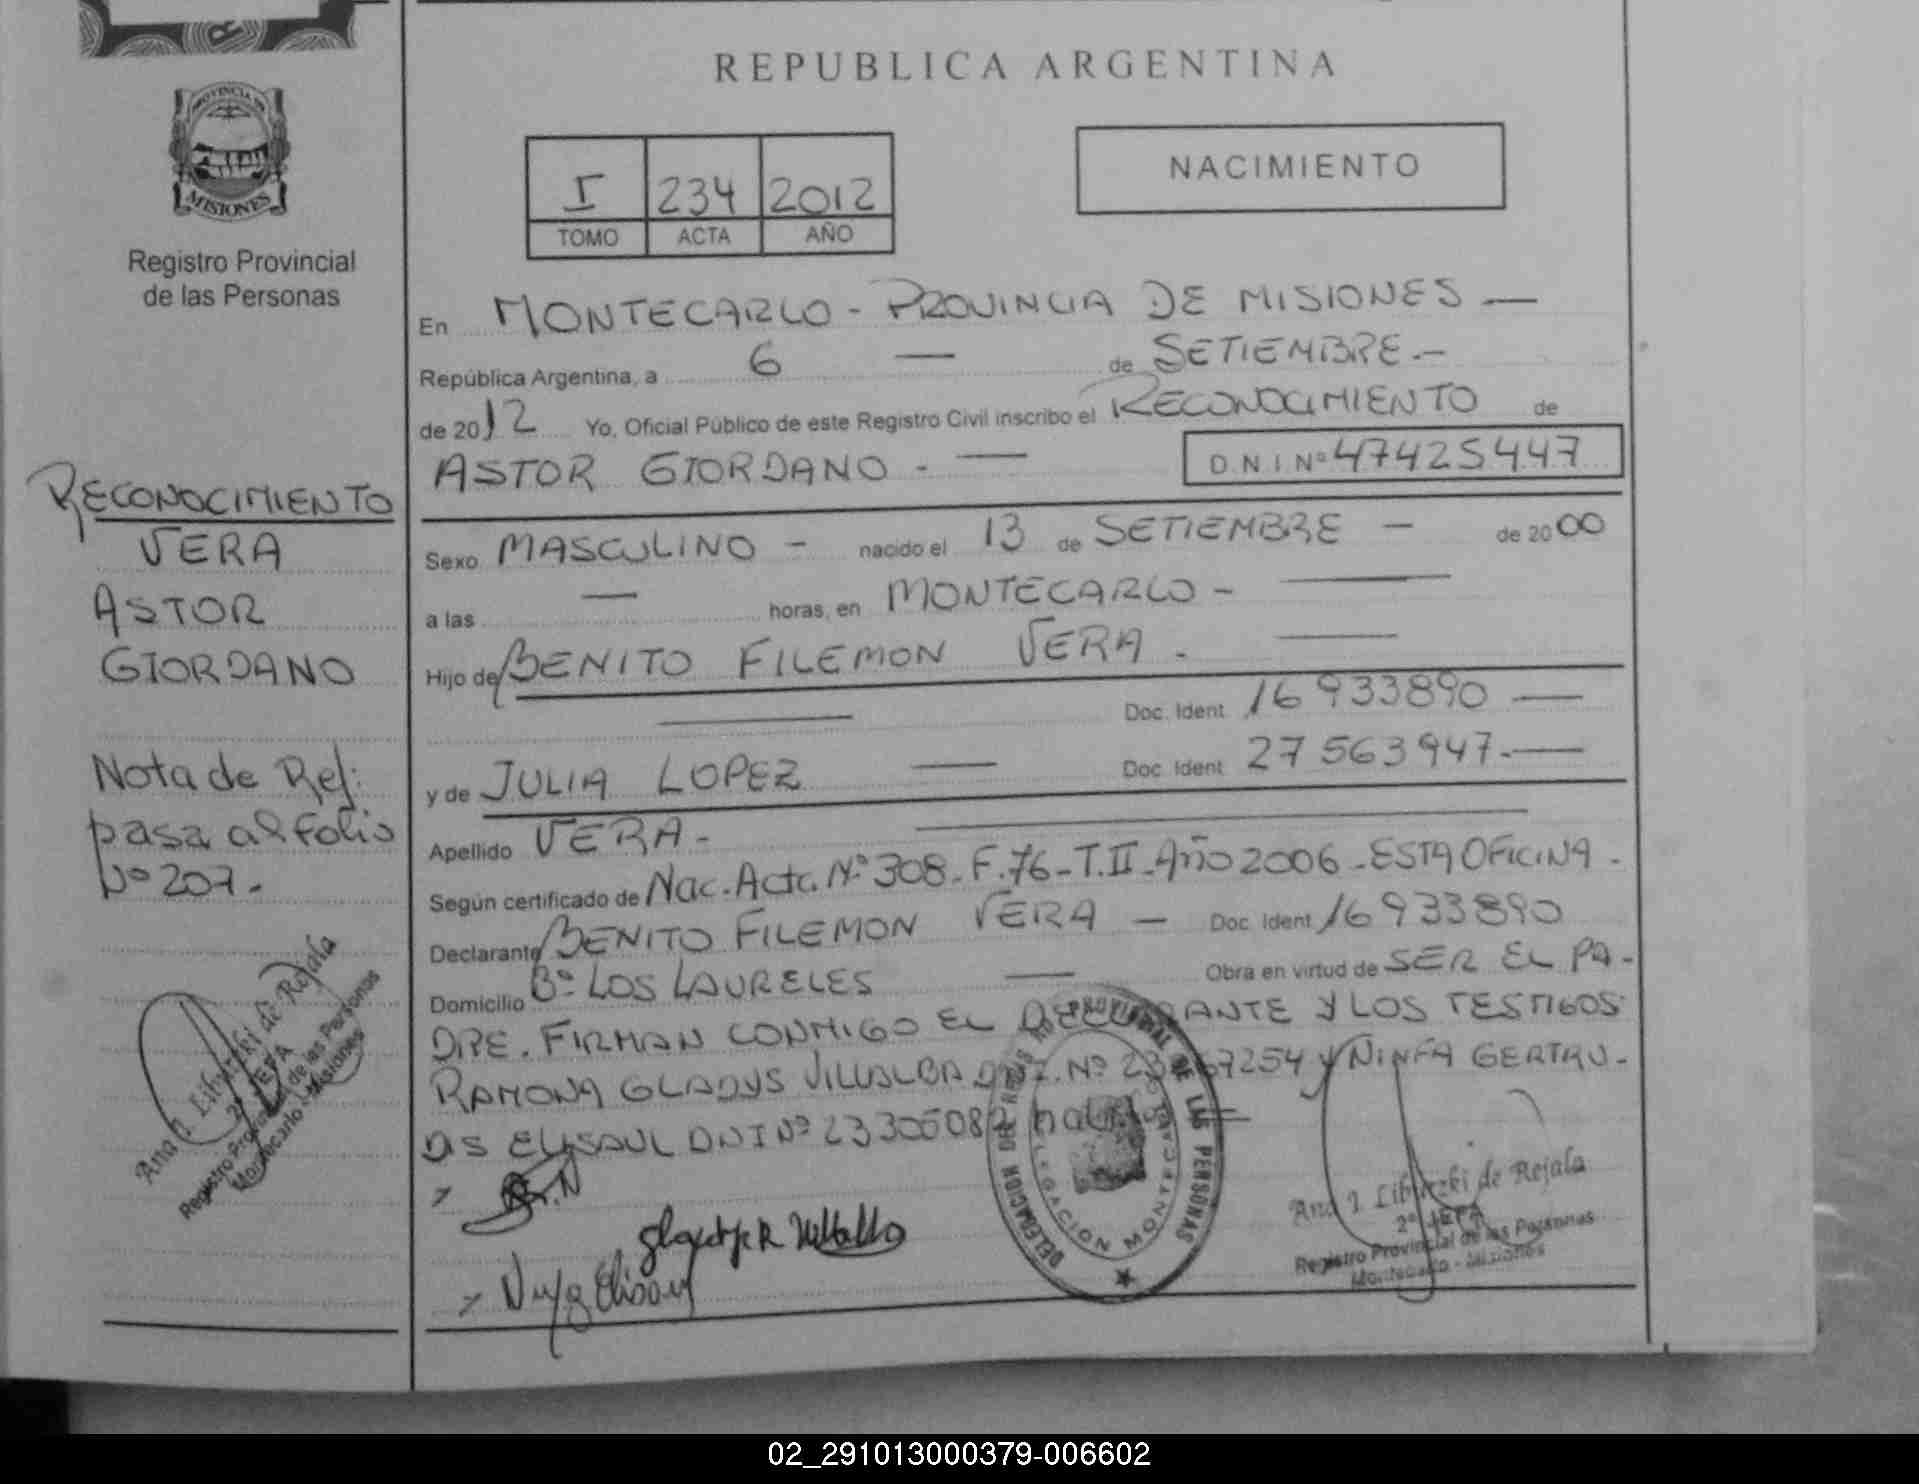 PROVINCIA DE
MISIONES
Registro Provincial
de las Personas
RECONOCIMIENTO
VERA
ASTOR
GIORDANO
Nota de Ref:
pasa al folio
Nº 207.-
Ana I. de Rojala
2º JEFA
Registro Provincial de las Personas
Montecarlo - Misiones
REPUBLICA ARGENTINA
I 234 2012
TOMO ACTA AÑO
NACIMIENTO
En MONTECARLO - PROVINCIA DE MISIONES —
República Argentina, a 6 — de SETIEMBRE.-
de 2012 Yo, Oficial Público de este Registro Civil inscribo el RECONOCIMIENTO de
ASTOR GIORDANO - — D.N.I Nº 47425447
Sexo MASCULINO - nacido el 13 de SETIEMBRE - de 2000
a las — horas, en MONTECARLO - —
Hijo de BENITO FILEMON VERA. —
— Doc. Ident 16933890 —
y de JULIA LOPEZ — Doc. Ident 27563947.—
Apellido VERA - —
Según certificado de Nac. Acta. Nº 308 - F. 76 - T. II - Año 2006 - ESTA OFICINA -
Declarante BENITO FILEMON VERA — Doc Ident 16933890
Domicilio Bº LOS LAURELES — Obra en virtud de SER EL PA-
DRE. FIRMAN CONMIGO EL DECLARANTE Y LOS TESTIGOS
RAMONA GLADYS VILLALBA Nº 7254 y NINFA GERTRU-
DIS DNI Nº 2330508
DELEGACION DEL REGISTRO PROVINCIAL DE LAS PERSONAS
DELEGACION MONTECARLO
Ana I. de Rojala
2º JEFA
Registro Provincial de las Personas
Montecarlo - Misiones
02_291013000379-006602